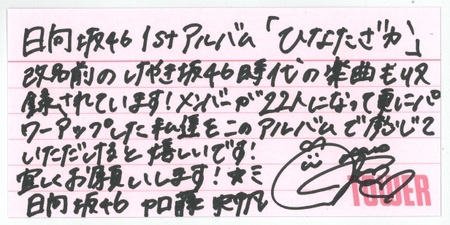 日向坂46 1stアルバム「ひなたざか」
改名前のけやき坂46時代の楽曲も収
録されています!メンバーが22人になって更にパ
ワーアップした私達をこのアルバムで感じて
いただけると嬉しいです!
宜しくお願いします!☆ミ
日向坂46 加藤史帆
TOWER